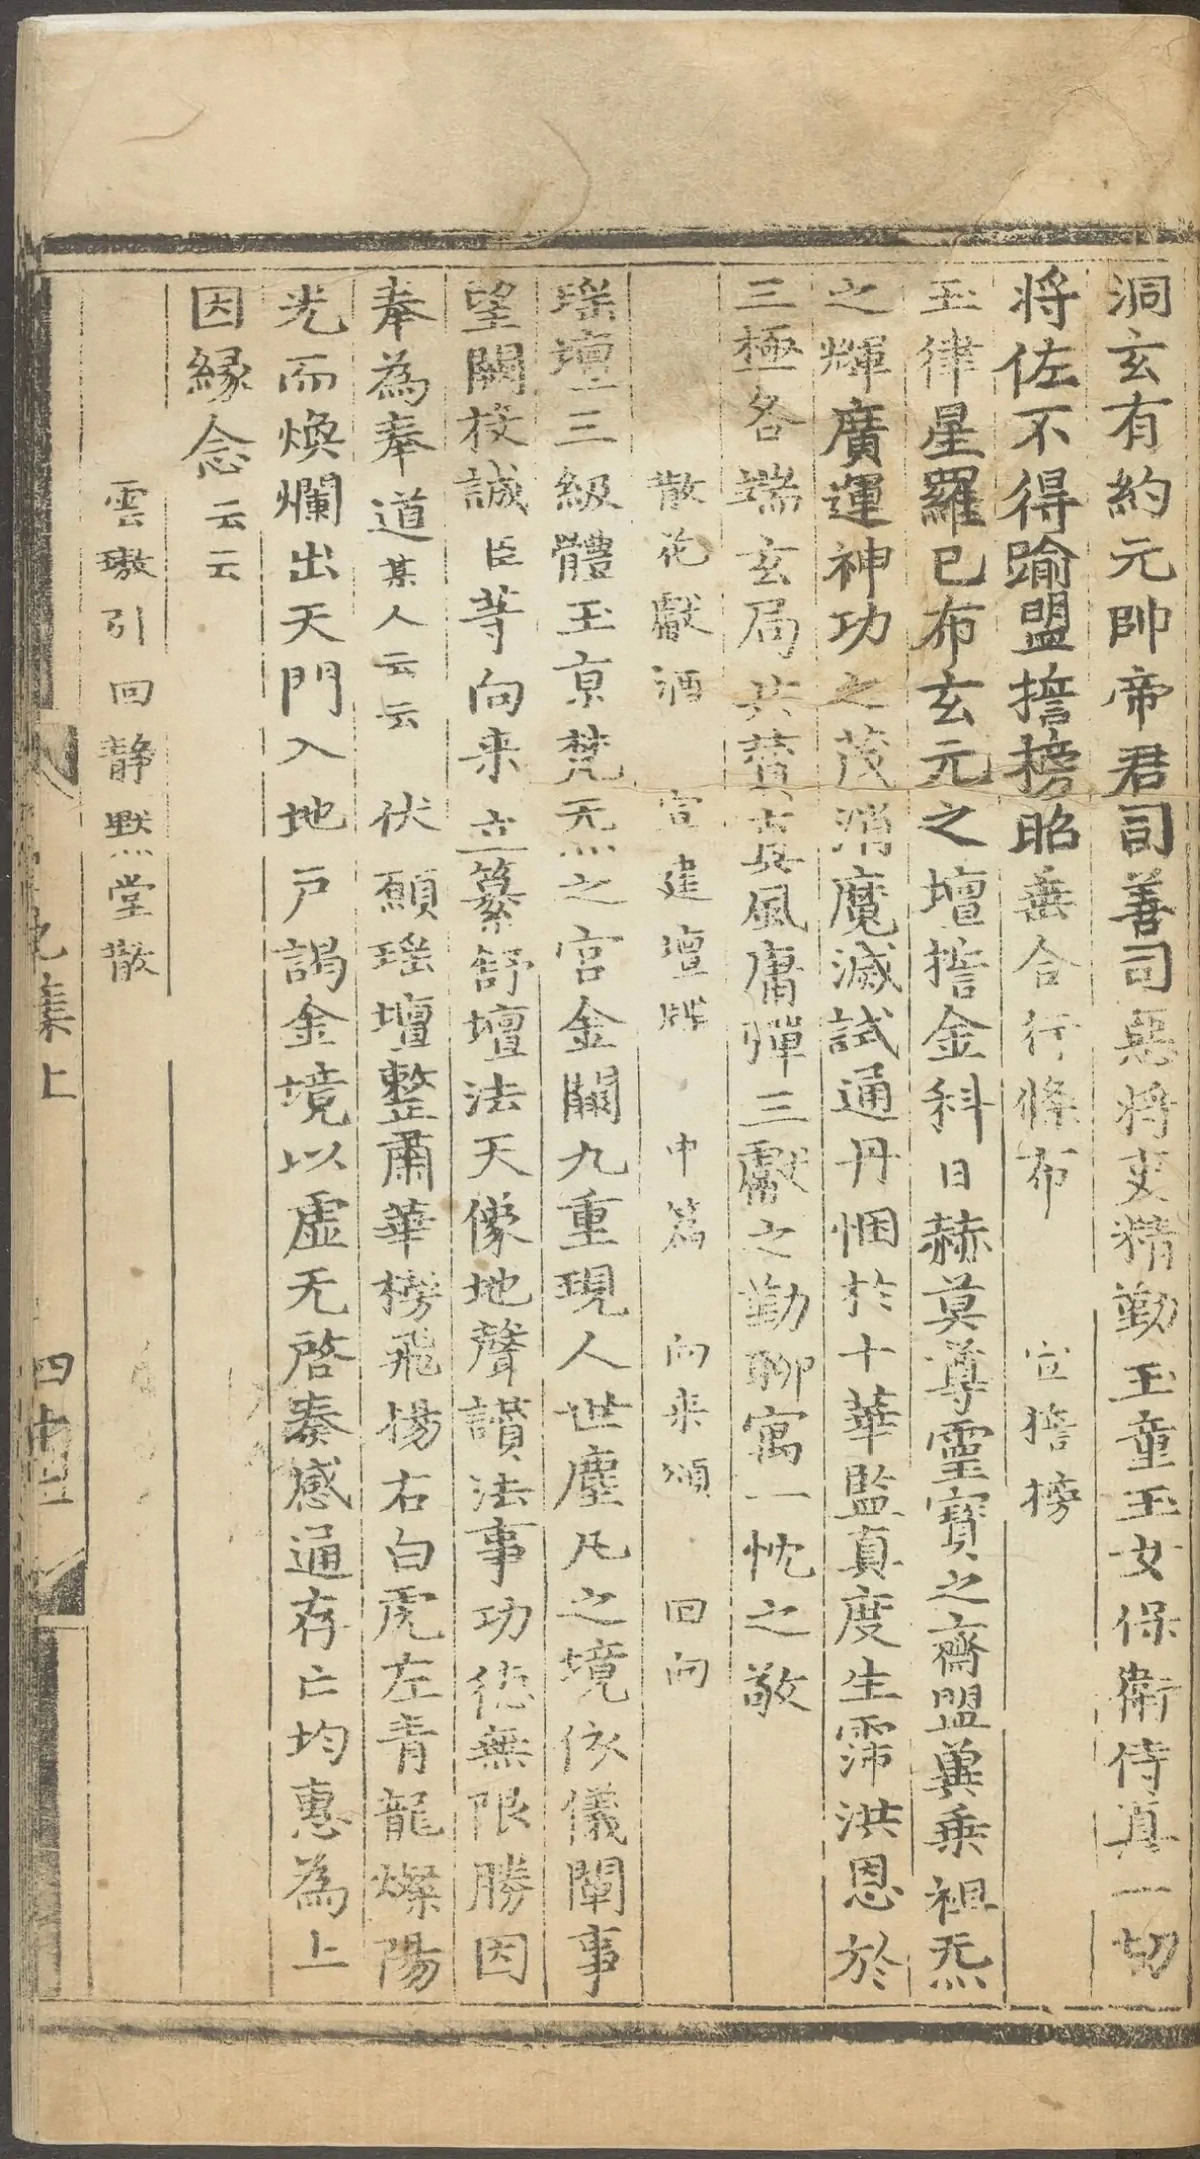 洞玄有約元帥帝君司善司惡將吏精勤玉童玉女保衛侍真一切
将佐不得踰盟擔榜昭垂合行條布 宣擔榜
玉律星羅已布玄元之壇擔金科日赫莫尊靈寶之齋盟冀乗祖炁
之輝廣運神功之茂消魔滅試通丹悃於十華監真度生霈洪恩於
三極各端玄局共賛真風庸殫三獻之勤聊寓一忱之敬
散花獻酒 宣建壇牌 中篇 向来頌 回向
瑶壇三級體玉京梵炁之宫金闕九重現人世塵凡之境依儀闡事
望闕投誠臣等向来立纂舒壇法天像地聲讚法事功德無限勝因
奉為奉道某人云云 伏願瑶壇整肅華榜飛揚右白虎左青龍燦陽
光而煥爛出天門入地户謁金境以虚无啓奏感通存亡均惠為上
因縁念云云
雲璈引 回靜默堂散
集上
四十